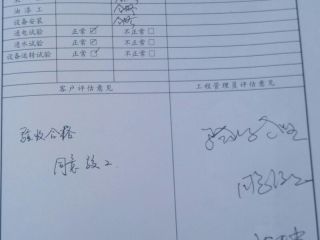 油漆工 合格
设备安装 合格
通电试验 正常☑ 不正常☐
通水试验 正常☑ 不正常☐
设备运转试验 正常☑ 不正常☐
客户评估意见 工程管理员评估意见
验收合格
同意竣工
验收合格
同意竣工